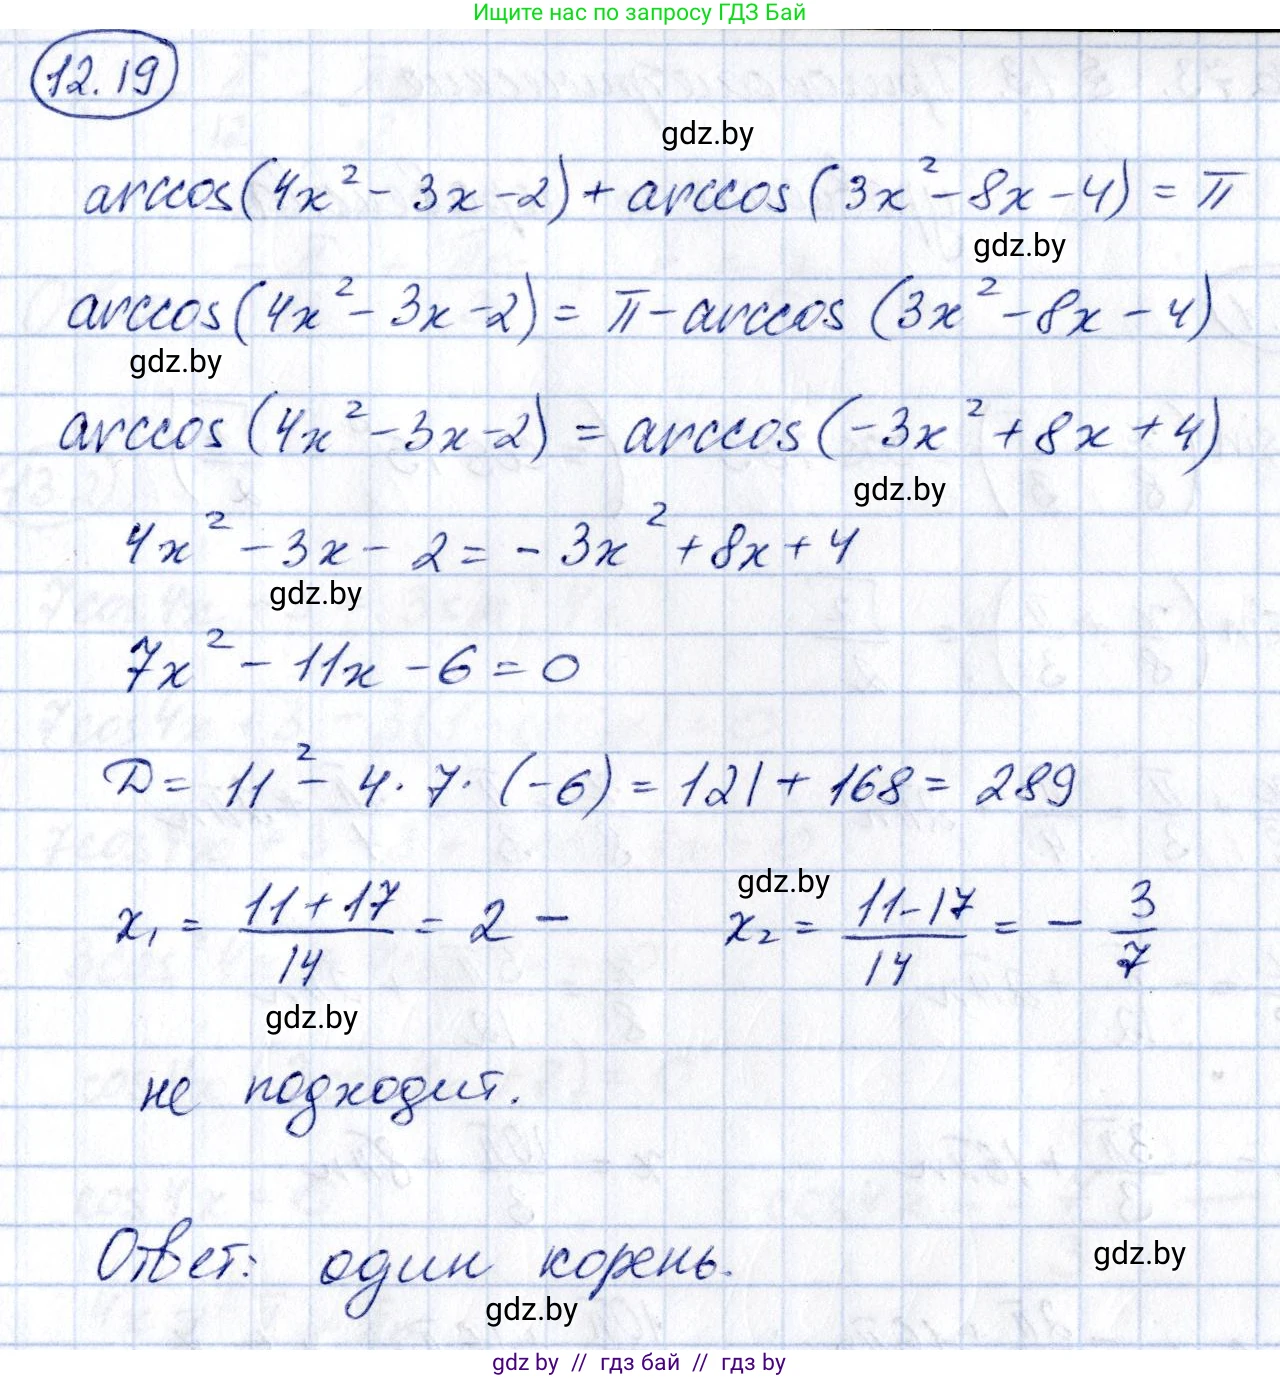 Ищите нас по запросу ГДЗ Бай
12.19
gdz.by
arccos(4x² - 3x - 2) + arccos(3x² - 8x - 4) = π
gdz.by
arccos(4x² - 3x - 2) = π - arccos(3x² - 8x - 4)
gdz.by
arccos(4x² - 3x - 2) = arccos(-3x² + 8x + 4)
gdz.by
4x² - 3x - 2 = -3x² + 8x + 4
gdz.by
7x² - 11x - 6 = 0
D = 11² - 4 · 7 · (-6) = 121 + 168 = 289
gdz.by
x₁ = (11 + 17)/14 = 2 - x₂ = (11 - 17)/14 = - 3/7
gdz.by
не подходит.
Ответ: один корень.
gdz.by
gdz.by
gdz by // гдз бай // гдз by